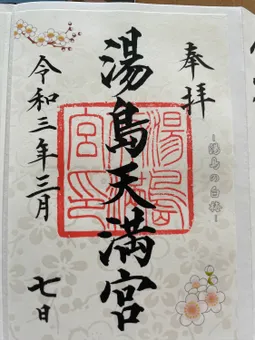 奉拝
~湯島の白梅~
湯島天満宮
湯島天満宮印
令和三年三月
七日